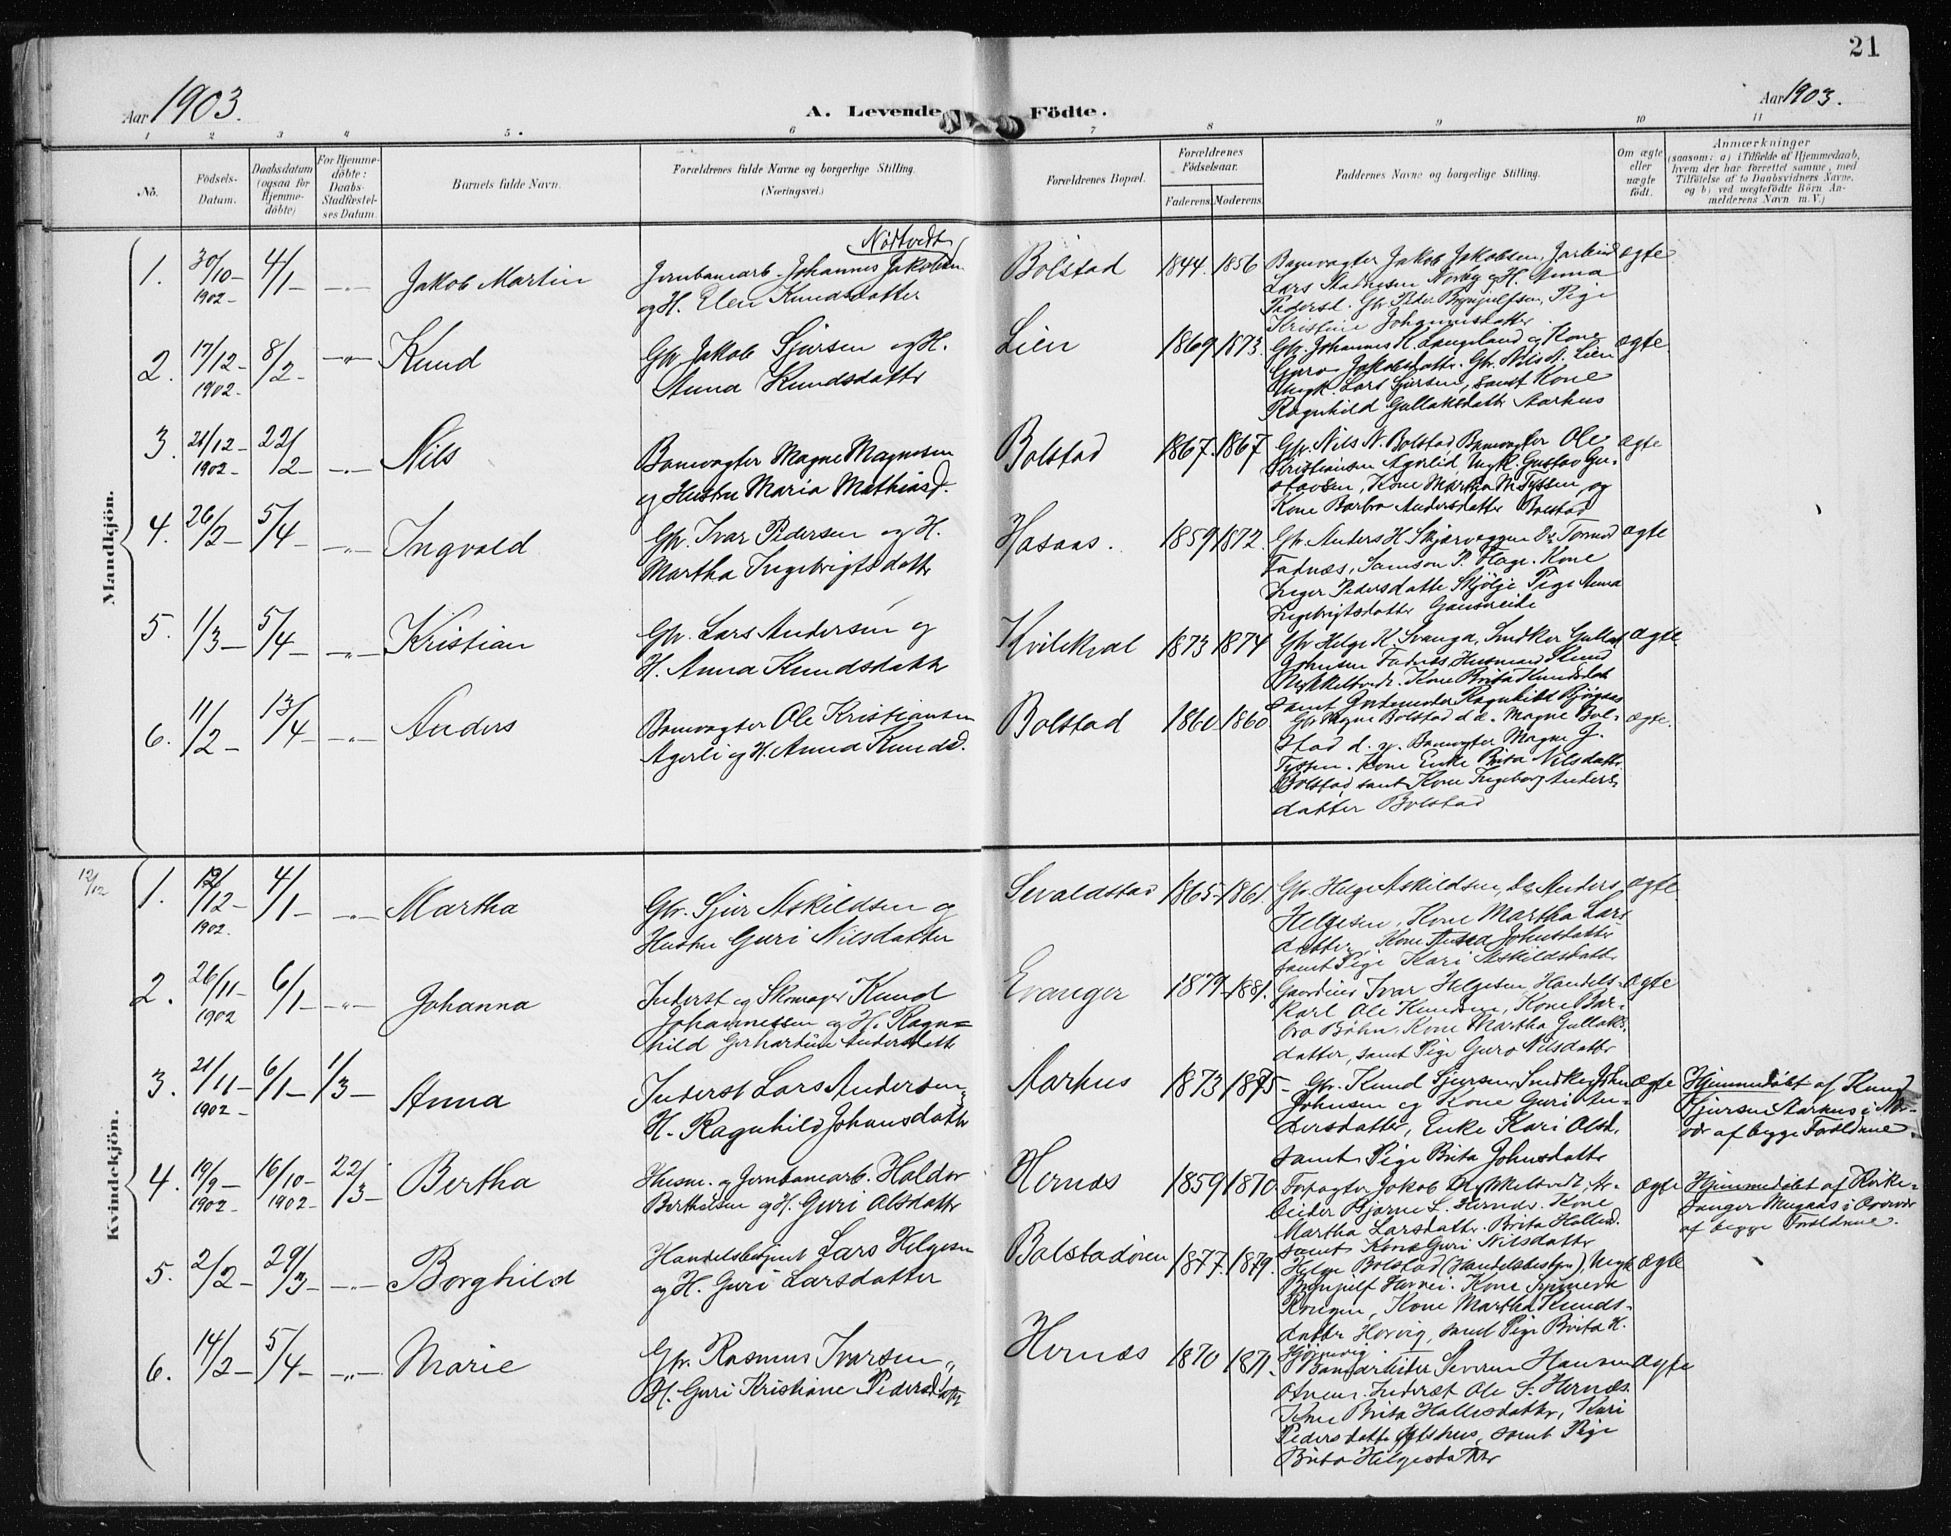 21
Aar 1903.
A. Levende Födte.
Aar 1903.
1 2 3 4 5. 6 7 8 9 10 11
No.
Födsels-
Datum.
Daabsdatum
(ogsaa for
Hjemme-
döbte)
For Hjemme-
döbte:
Daabs-
Stadfæstel-
ses Datum.
Barnets fulde Navn.
Forældrenes fulde Navne og borgerlige Stilling.
(Næringsvei.)
Forældrenes Bopæl.
Forældrenes
Födselsaar.
Faderens. Moderens.
Faddernes Navne og borgerlige Stilling.
Om ægte
eller
uægte
födt.
Anmærkninger
(saasom: a) i Tilfælde af Hjemmedaab,
hvem der har forrettet samme, med
Tilföielse af to Daabsvidners Navne,
og b) ved uægtefödte Börn An-
melderens Navn m. V.)
Mandkjön.
1. 30/10 1902 4/1 Jakob Martin
Nödtvedt
Jernbanearb. Johannes Jakobsen
og H. Elen Knudsdatter
Bolstad 1844. 1856
Banevogter Jakob Jakobsen,
Lars og H. Anna
Pedersd. Gbr. Peder Brynjulfsen, Pige
Kristine Johannesdatter
ægte
2. 17/12 1902 8/2 Knud
Gbr. Jakob Sjursen og H.
Anna Knudsdatter
Lien 1869 1873.
Gbr. Johannes K. Langeland og Kone
Guro Jakobsdatter. Gbr. Nils N. Lien
Ungk. Lars Sjursen, samt Kone
Ragnhild Gullaksdatter Aarhus
ægte
3. 21/12 1902 22/2 Nils
Banevogter Magne Magnesen
og Hustru Maria Mathiasd.
Bolstad 1867. 1867
Gbr. Nils N. Bolstad, Banevogter Ole
Kristiansen Agerlid, Ungk. Gustav Gu-
stavsen, Kone Martha M. Tyssen, og
Kone Barbro Andersdatter Bolstad
ægte
4. 26/2 5/4 Ingvald
Gbr. Ivar Pedersen og H.
Martha Ingebrigtsdatter
Hosaas. 1859 1872.
Gbr. Anders H. Skjerveggen Do Tormod
Fadnæs, Samson P. Flage. Kone
Inger Pedersdatter Pige Anna
Ingebrigtsdatter
ægte
5. 1/3 5/4 Kristian
Gbr. Lars Andersen og
H. Anna Knudsdatter
Kvilekval 1873 1874
Gbr Helge K Svanga, Snedker Gullak
Johnsen Fadnæs, Husmand Knud
Mykkeltvedt. Kone Brita Knudsdat
samt Gordemoder Ragnhild
ægte.
6. 11/2 13/4 Anders
Banevogter Ole Kristiansen
Agerli og H. Anna Knudsd.
Bolstad 1860 1860
Gbr Magne Bolstad d. æ. Magne Bol-
stad d. y. Banevogter Magne G.
Tyssen. Kone Enke Brita Nilsdatter
Bolstad, samt Kone Ingeborg Anders-
datter Bolstad
ægte.
Kvindekjön.
12/12
1. 12/12 1902. 4/1 Martha
Gbr. Sjur Askildsen og
Hustru Guri Nilsdatter
Sevaldstad 1865 1861.
Gbr. Helge Askildsen, Do Anders
Helgesen, Kone Martha Lars
datter, Kone Anna Johnsdatter
samt Pige Kari Askildsdatter
ægte
2. 26/11 1902 6/1 Johanna
Inderst og Skomager Knud
Johannessen og H. Ragn-
hild Gerhardine Andersdatter
Evanger 1879 1881.
Gaardeier Ivar Helgesen Handels-
karl Ole Knudsen, Kone Bar-
bro Bøhn, Kone Martha Gullaks-
datter, samt Pige Guro Nilsdatter
ægte
3. 21/11 1902 6/1 1/3 Anna
Inderst Lars Andersen
H. Ragnhild Johansdatter
Aarhus 1873 1875
Gbr. Knud Sjursen, Snedker John
Johnsen og Kone Guri An-
dersdatter, Enke Kari Olsd.
samt Pige Brita Johnsdatter
ægte
Hjemmedøbt af Knud
Sjursen Aarhus i Nær-
vær af begge Forældrene
4. 19/9 1902 16/10 1902 22/3 Bertha
Husm. og Jernbanearb. Haldor
Berthelsen og H. Guri Olsdatter
Hernæs 1859 1870
Forpagter Jakob Mykkeltvedt, Ar-
beider Bjarne L. Hernæs. Kone
Martha Larsdatter. Brita Hallesd.
samt Kone Guri Nilsdatter
ægte
Hjemmedøbt af Kirke-
sanger Mugaas i Overvær
af begge Forældrene.
5. 2/2 29/3 Borghild
Handelsbetjent Lars Helgesen
og H. Guri Larsdatter
Bolstadøren 1877. 1879.
Helge Bolstad (Handelsbestyr), Ungk
Brynjulf Horvei. Kone Synneva
Rongen, Kone Martha Knuds-
datter Horvig, samt Pige Brita H.
Hjørnevig
ægte
6. 14/2 5/4 Marie
Gbr. Rasmus Ivarsen
H. Guri Kristiane Pedersdatter
Hernæs 1870 1871.
Banearbeider Severin Hansen
Inderst Ole S. Hernæs.
Kone Brita Hallesdatter, Kari
Pedersdatter, samt Pige
Brita Helgesdatter
ægte